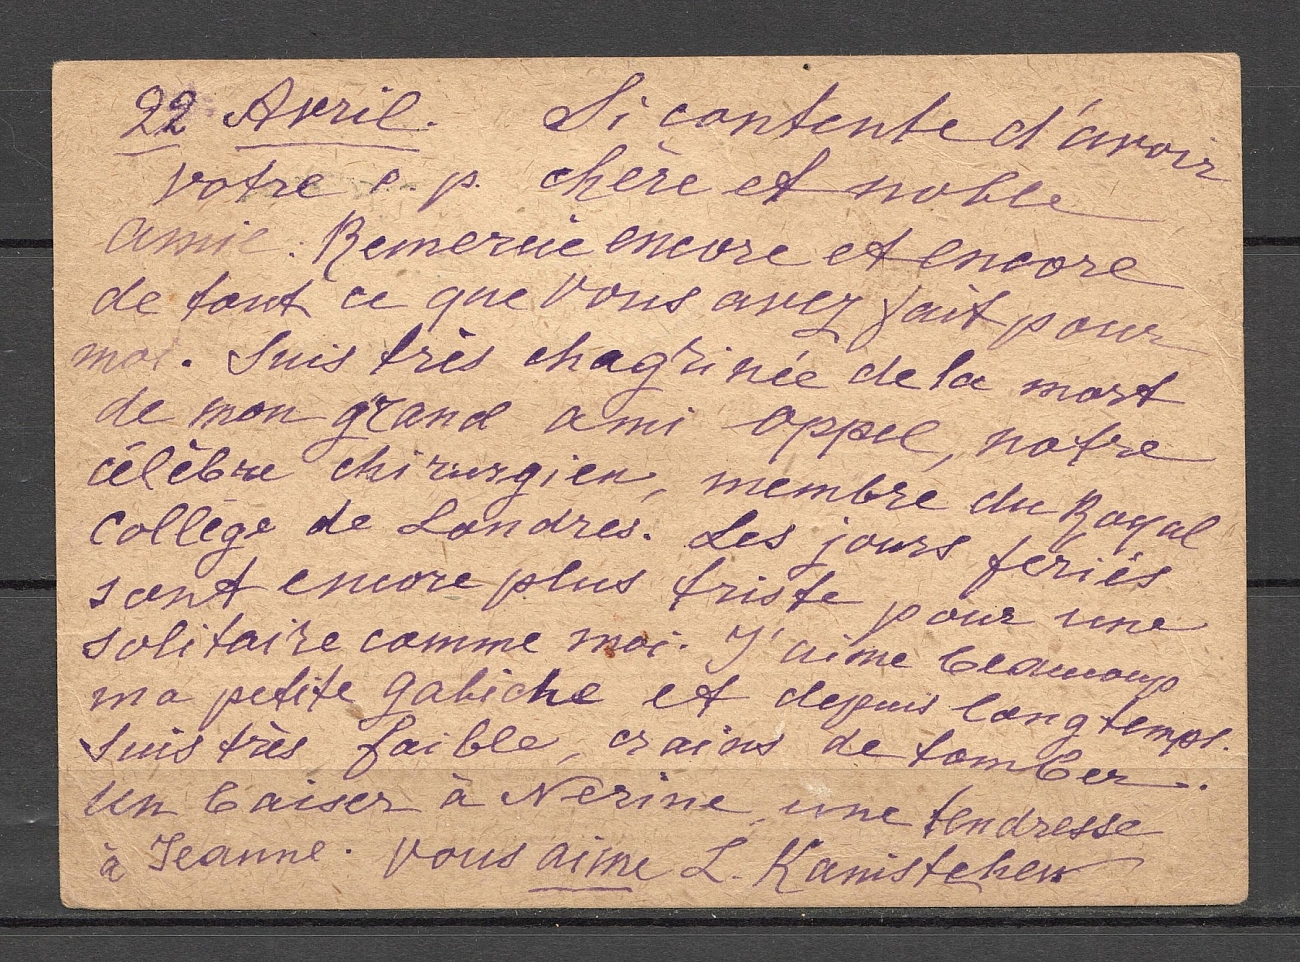 22 Avril. Si contente d'avoir
votre c. p. chère et noble
amie. Remercie encore et encore
de tout ce que vous avez fait pour
moi. Suis très chagrinée de la mort
de mon grand ami Oppel, notre
célèbre chirurgien, membre du Royal
Collège de Londres. Les jours feriés
sont encore plus triste pour une
solitaire comme moi. J'aime beaucoup
ma petite Gabiche et depuis longtemps.
Suis très faible, crains de tomber.
Un baiser à Nerine, une tendresse
à Jeanne. Vous aime L.